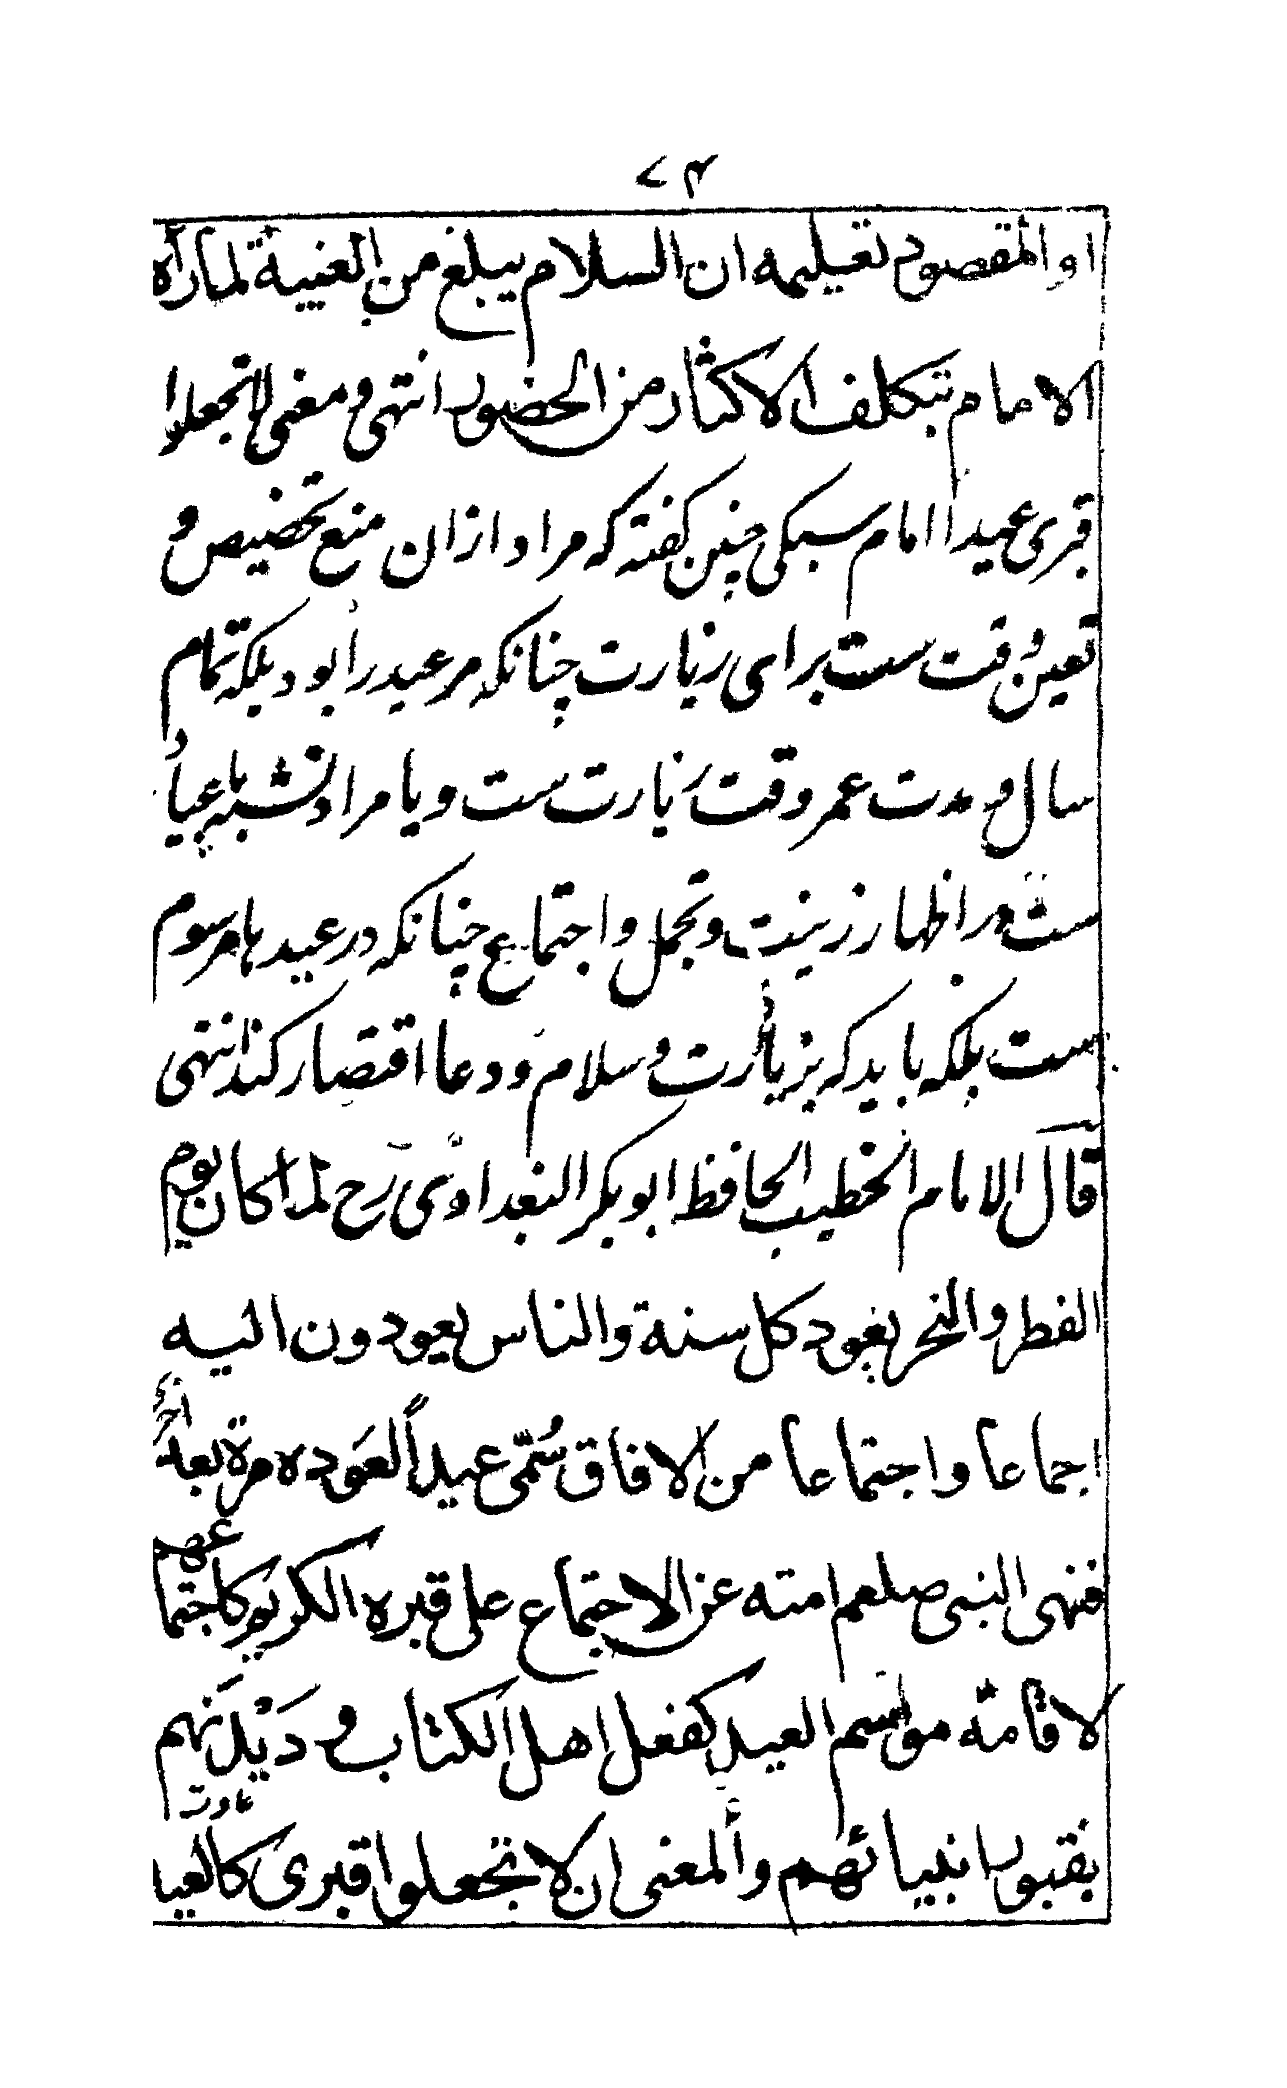 ۷۴
او المقصود تعليمه ان السلام يبلغ من الغيبة لما رآه
الامام بتكلف الاكثار من الحضور انتهى و معنى لا تجعلوا
قبرى عيدا امام سبكى چنين گفته كه مراد از ان منع تخصيص و
تعين وقت ست براى زيارت چنانكه مر عيد را بود بلكه تمام
سال و مدت عمر وقت زيارت ست و يا مراد تشبه باعياد
ست در اظهار زينت و تجمل و اجتماع چنانكه در عيدها مرسوم
ست بلكه بايد كه بزيارت و سلام و دعا اقتصار كند انتهى
قال الامام الخطيب الحافظ ابو بكر البغدادى رح لما كان يوم
الفطر والنحر يعود كل سنة والناس يعودون اليه
اجماعا واجتماعا من الافاق سُمّى عيداً لعَوده مرة بعد اخرى
فنهى النبى صلعم امته عن الاجتماع على قبره الكريم كاجتماعهم
لاقامة مواسم العيد كفعل اهل الكتاب و دَيْدَنهم
بقبور انبيائهم و المعنى ان لا تجعلوا قبرى كالعيا
عادت